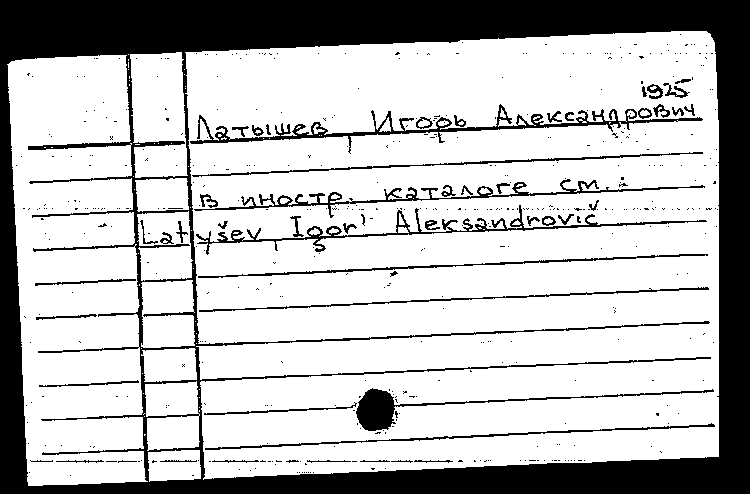 1925
Латышев, Игорь Александрович
в иностр. каталоге см.:
Latyšev, Igor' Aleksandrovič